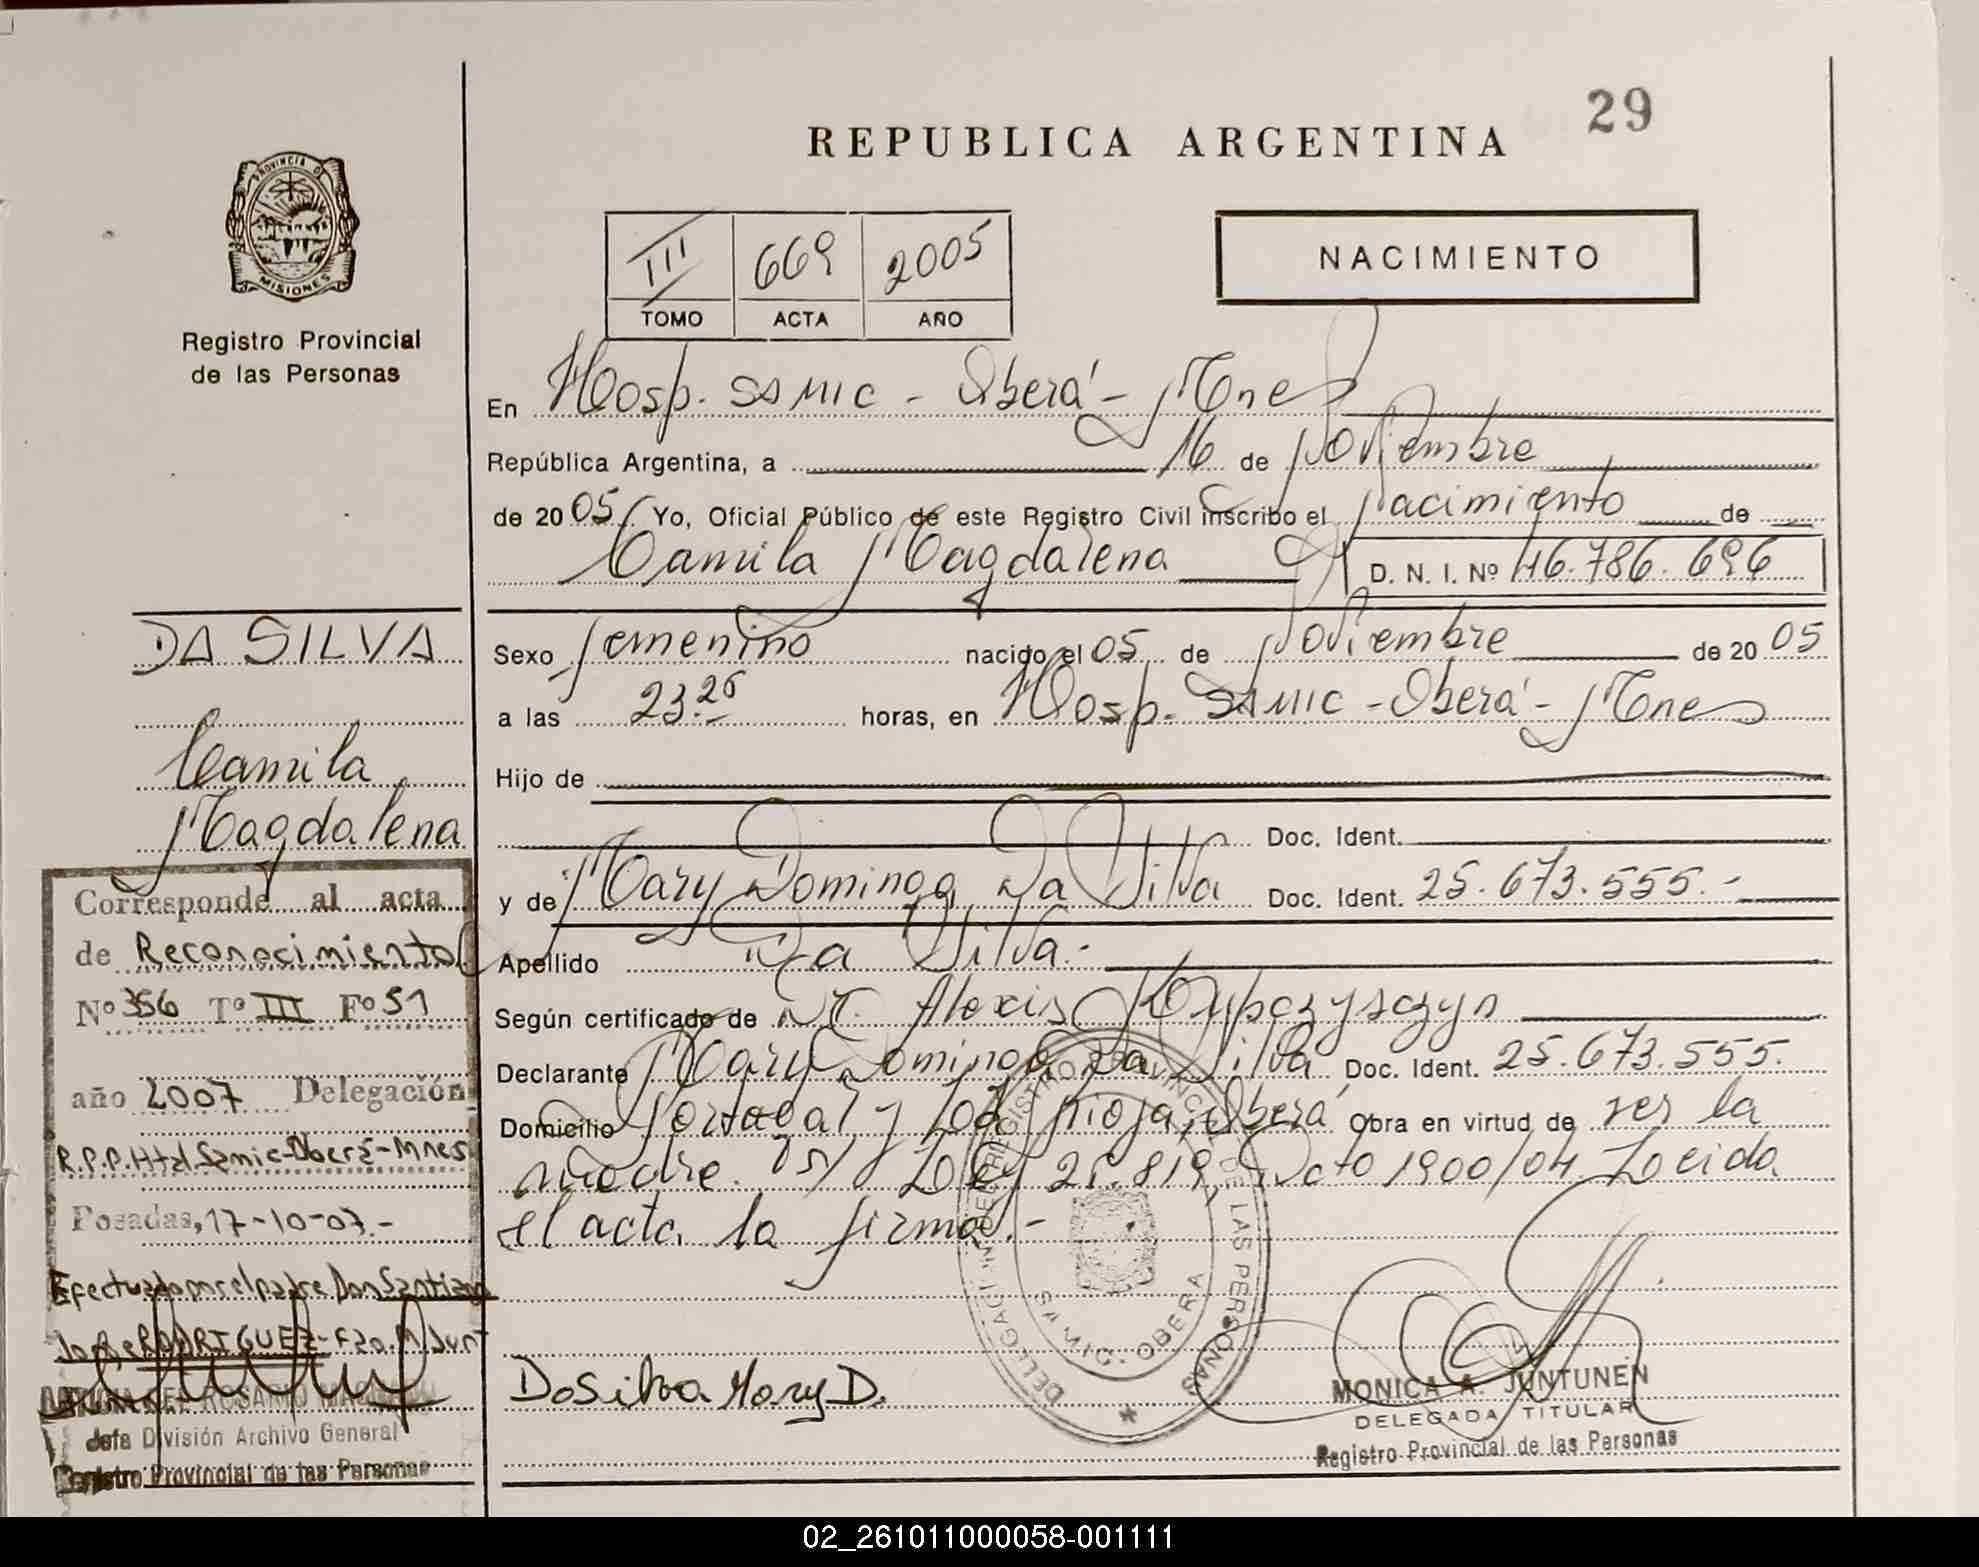 29
REPUBLICA ARGENTINA
PROVINCIA DE
MISIONES
Registro Provincial
de las Personas
III 669 2005
TOMO ACTA AÑO
NACIMIENTO
En Hosp. SAMIC - Oberá - Mnes
República Argentina, a 16 de Noviembre
de 2005 Yo, Oficial Público de este Registro Civil inscribo el Nacimiento de
Camila Magdalena D. N. I. Nº 46.786.696
Sexo femenino nacido el 05 de Noviembre de 2005
a las 23.25 horas, en Hosp. SAMIC - Oberá - Mnes
Hijo de
Doc. Ident.
y de Mary Dominga Da Silva Doc. Ident. 25.673.555.-
Apellido Da Silva.-
Según certificado de Dr. Alexis
Declarante Mary Dominga Da Silva Doc. Ident. 25.673.555.
Domicilio Portugal y La Rioja, Oberá Obra en virtud de ser la
madre. s/ Ley 25.819, Dcto 1900/04. Leida
el acta, la firma.-
DaSilva Mary D.
DELEGACION REGISTRO PROVINCIAL DE LAS PERSONAS
SAMIC. OBERA
MONICA A. JUNTUNEN
DELEGADA TITULAR
Registro Provincial de las Personas
DA SILVA
Camila
Magdalena
Corresponde al acta
de Reconocimiento
Nº 356 Tº III Fº 51
año 2007 Delegación
R.P.P. Htal. Samic-Oberá-Mnes
Posadas, 17-10-07.-
Efectuado por el padre Don Santiago
Jorge RODRIGUEZ - Fdo. M. Junt
Jefa División Archivo General
Registro Provincial de las Personas
02_261011000058-001111